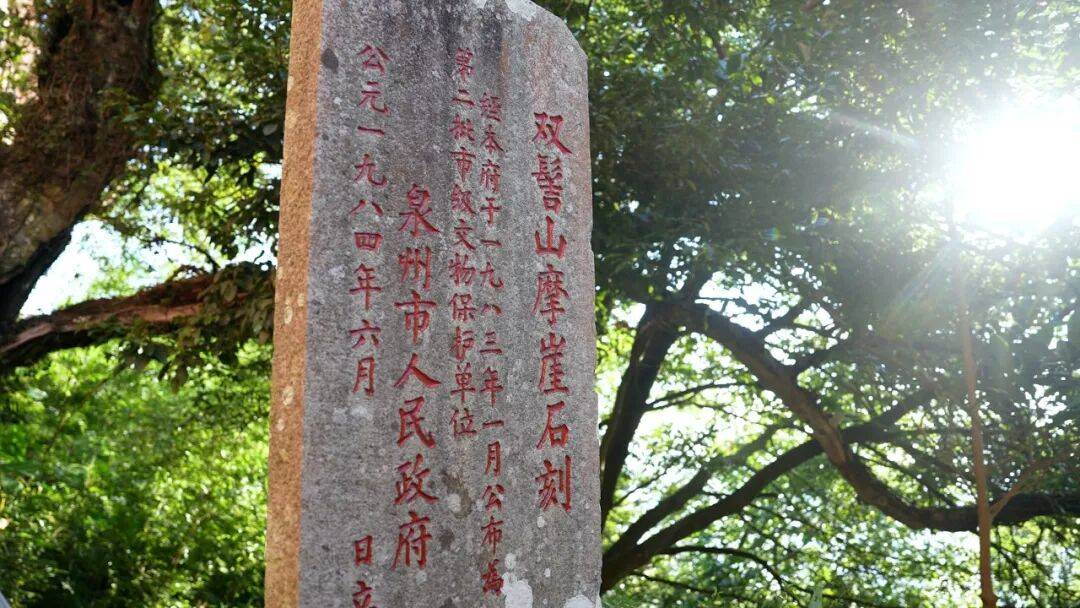 双髻山摩崖石刻
经本府于一九八三年一月公布為
第二批市级文物保护单位
泉州市人民政府
公元一九八四年六月 日立